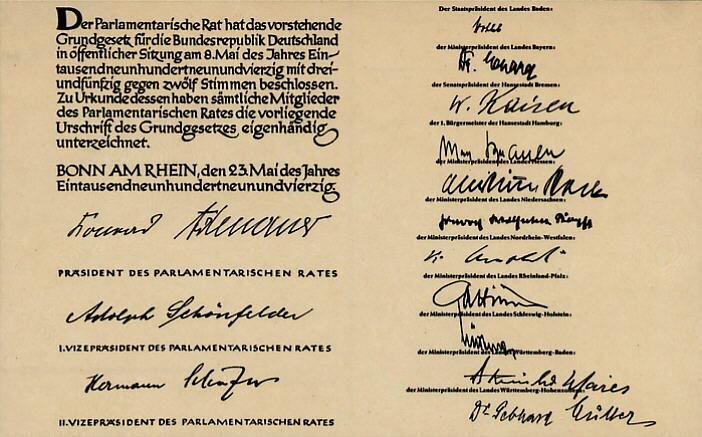 Der Parlamentarische Rat hat das vorstehende
Grundgesetz für die Bundesrepublik Deutschland
in öffentlicher Sitzung am 8. Mai des Jahres Ein-
tausendneunhundertneunundvierzig mit drei-
undfünfzig gegen zwölf Stimmen beschlossen.
Zu Urkunde dessen haben sämtliche Mitglieder
des Parlamentarischen Rates die vorliegende
Urschrift des Grundgesetzes eigenhändig
unterzeichnet.
BONN AM RHEIN, den 23. Mai des Jahres
Eintausendneunhundertneunundvierzig
Konrad Adenauer
PRÄSIDENT DES PARLAMENTARISCHEN RATES
Adolph Schönfelder
I. VIZEPRÄSIDENT DES PARLAMENTARISCHEN RATES
Hermann Schäfer
II. VIZEPRÄSIDENT DES PARLAMENTARISCHEN RATES
Der Staatspräsident des Landes Baden:
der Ministerpräsident des Landes Bayern:
Dr. Ehard
der Senatspräsident der Hansestadt Bremen:
W. Kaisen
der 1. Bürgermeister der Hansestadt Hamburg:
Max Brauer
der Ministerpräsident des Landes Hessen:
Christian Stock
der Ministerpräsident des Landes Niedersachsen:
der Ministerpräsident des Landes Nordrhein-Westfalen:
K. Arnold
der Ministerpräsident des Landes Rheinland-Pfalz:
Altmeier
der Ministerpräsident des Landes Schleswig-Holstein:
Lüdemann
der Ministerpräsident des Landes Württemberg-Baden:
Reinhold Maier
der Ministerpräsident des Landes Württemberg-Hohenzollern:
Dr. Gebhard Müller